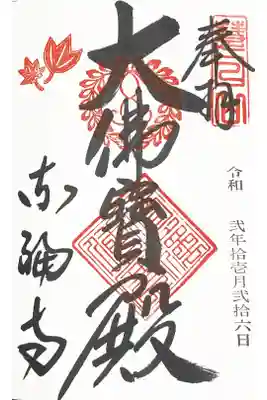 奉拝
令和 弐年拾壱月弐拾六日
大佛寶殿
东福寺